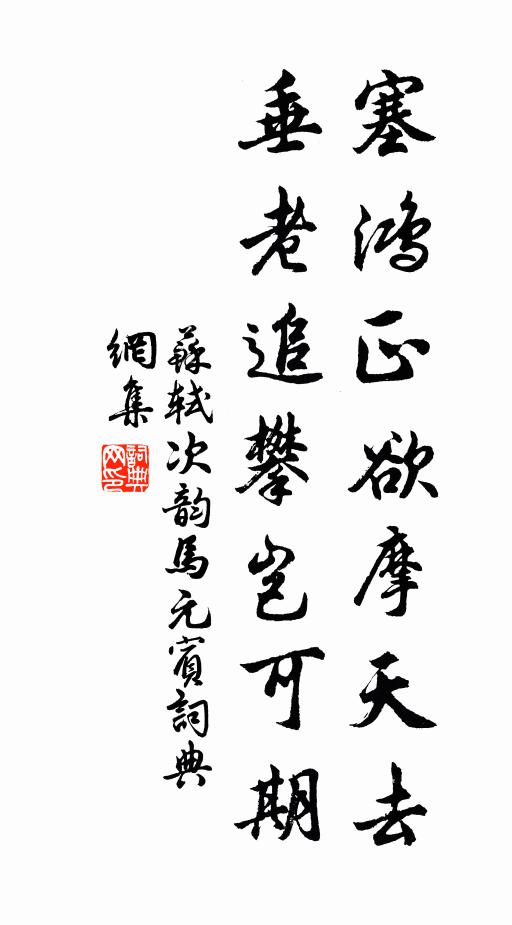 塞鸿正欲摩天去
垂老追攀岂可期
蘇軾次韵馬元賓詞典
網集
詞典
网印